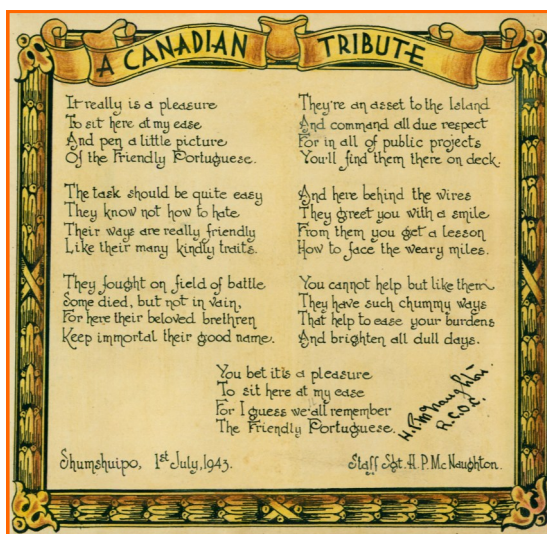 A CANADIAN TRIBUTE
It really is a pleasure
To sit here at my ease
And pen a little picture
Of the Friendly Portuguese.
The task should be quite easy
They know not how to hate
Their ways are really friendly
Like their many kindly traits.
They fought on field of battle
Some died, but not in vain,
For here their beloved brethren
Keep immortal their good name.
They're an asset to the Island
And command all due respect
For in all of public projects
You'll find them there on deck.
And here behind the wires
They greet you with a smile
From them you get a lesson
How to face the weary miles.
You cannot help but like them
They have such chummy ways
That help to ease your burdens
And brighten all dull days.
You bet it's a pleasure
To sit here at my ease
For I guess we'all remember
The Friendly Portuguese.
H.P. McNaughton.
R.C.O.C.
Shumshuipo, 1st July, 1943.
Staff Sgt. H. P. McNaughton.